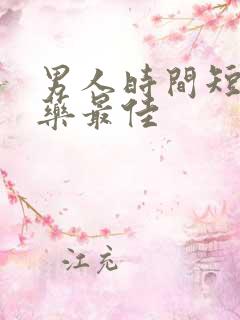 男人時間短
藥最佳
江充